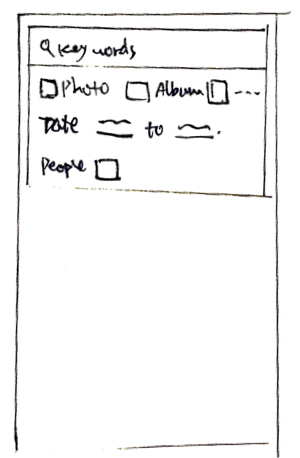 Key words
Photo Album ---
Date to .
People